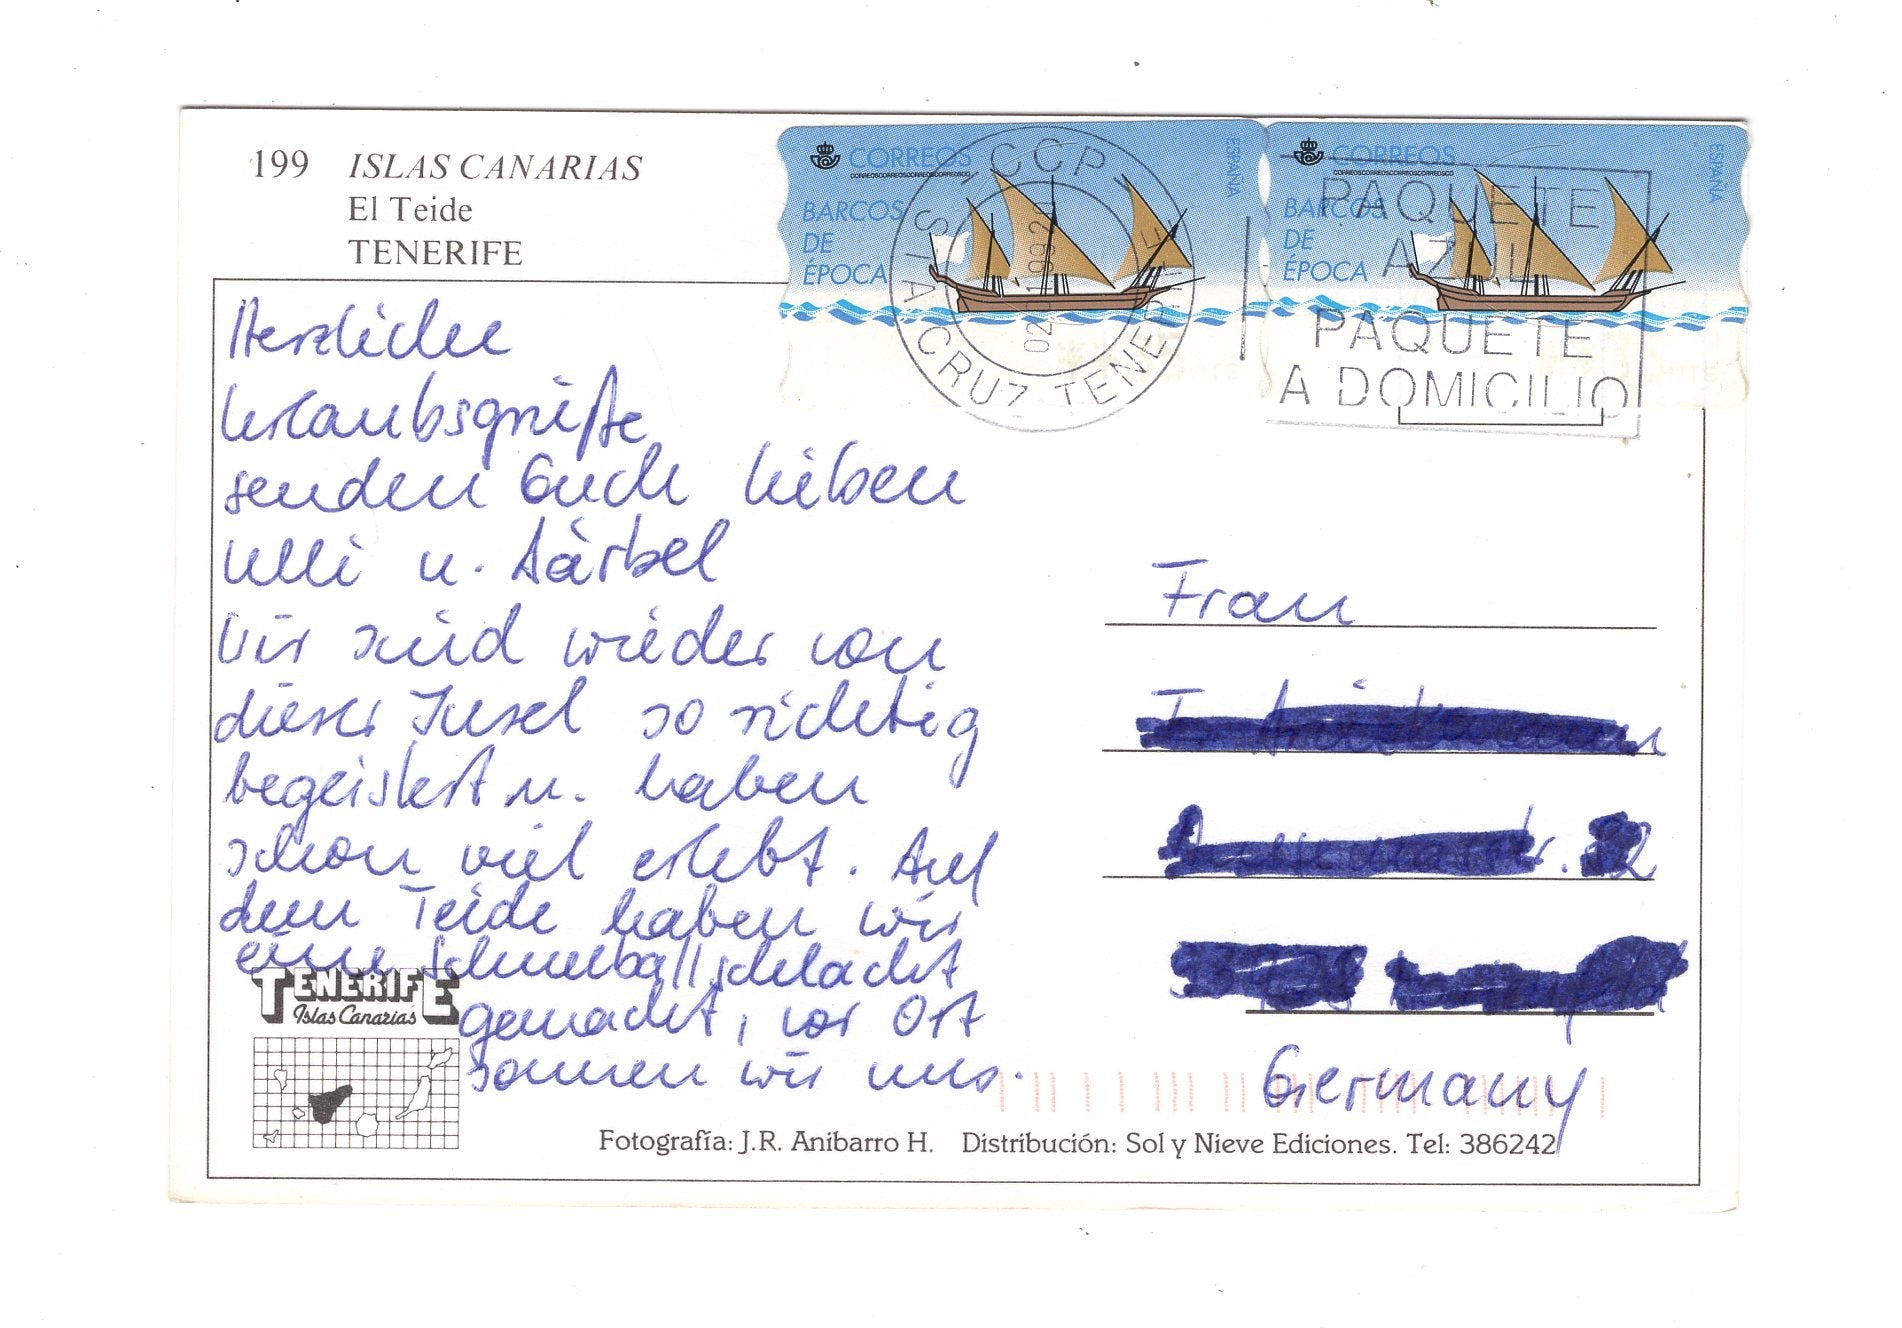 199 ISLAS CANARIAS
El Teide
TENERIFE
CORREOS
BARCOS
DE
ÉPOCA
ESPAÑA
CORREOS
BARCOS
DE
ÉPOCA
ESPAÑA
CCP
STA CRUZ TENERIFE
PAQUETE
AZUL
PAQUETE
A DOMICILIO
Herzliche
Urlaubsgrüße
senden Euch lieben
Ulli u. Bärbel
Wir sind wieder von
dieser Insel so richtig
begeistert u. haben
schon viel erlebt. Auf
dem Teide haben wir
eine Schneeballschlacht
gemacht, vor Ort
sonnen wir uns.
Frau
Germany
TENERIFE
Islas Canarias
Fotografía: J.R. Anibarro H. Distribución: Sol y Nieve Ediciones. Tel: 386242